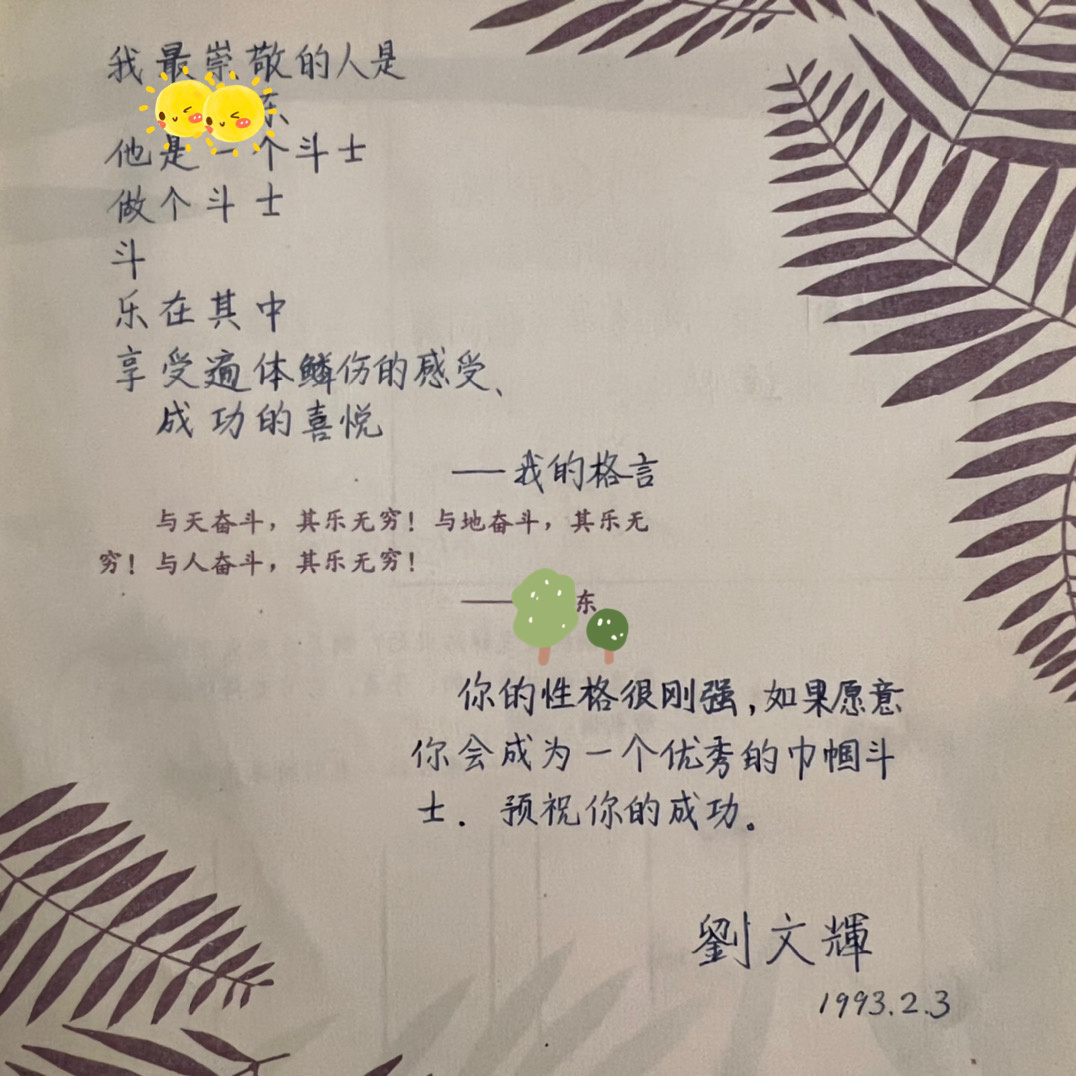 我最崇敬的人是
东
他是一个斗士
做个斗士
斗
乐在其中
享受遍体鳞伤的感受、
成功的喜悦
——我的格言
与天奋斗，其乐无穷！与地奋斗，其乐无
穷！与人奋斗，其乐无穷！
——东
你的性格很刚强，如果愿意
你会成为一个优秀的巾帼斗
士．预祝你的成功。
劉文輝
1993.2.3